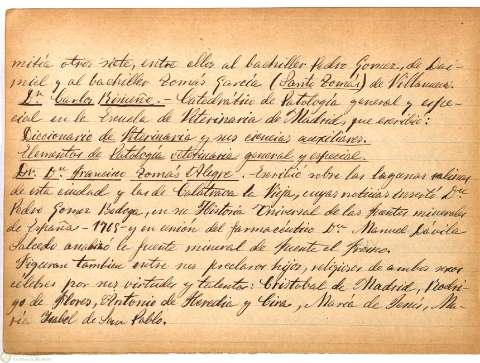 mitía otros siete, entre ellos al bachiller Pedro Gomez, de Dai-
miel y al bachiller Tomás García (Santo Tomás) de Villanueva.
Dn. Carlos Risueño.- Catedrático de Patología general y espe-
cial en la Escuela de Veterinaria de Madrid, que escribió:
Diccionario de Veterinaria y sus ciencias auxiliares.
Elementos de Patología veterinaria general y especial.
Dr. Dn. Francisco Tomás Alegre.- Escribió sobre las lagunas salinas
de esta ciudad y las de Calatrava la Vieja, cuyas noticias insertó Dn.
Pedro Gomez Bedoya, en su Historia Universal de las fuentes minerales
de España- 1765- y en unión del farmacéutico Dn. Manuel Dávila
Salcedo analizó la fuente mineral de Fuente el Fresno.
Figuran tambien entre sus preclaros hijos, religiosos de ambos sexos
célebres por sus virtudes y talento: Cristobal de Madrid, Rodri-
go de Flores, Antonio de Heredia y Cira, María de Jesús, Ma-
ría Isabel de San Pablo.